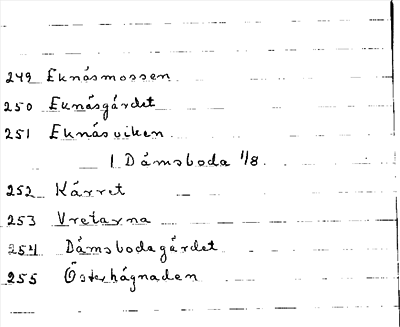 249 Eknåsmossen
250 Eknåsgårdet
251 Eknåsviken
1 Dåmsboda 1/8.
252 Kårret
253 Vretarna
254 Dåmsbodagårdet
255 Österhågnaden